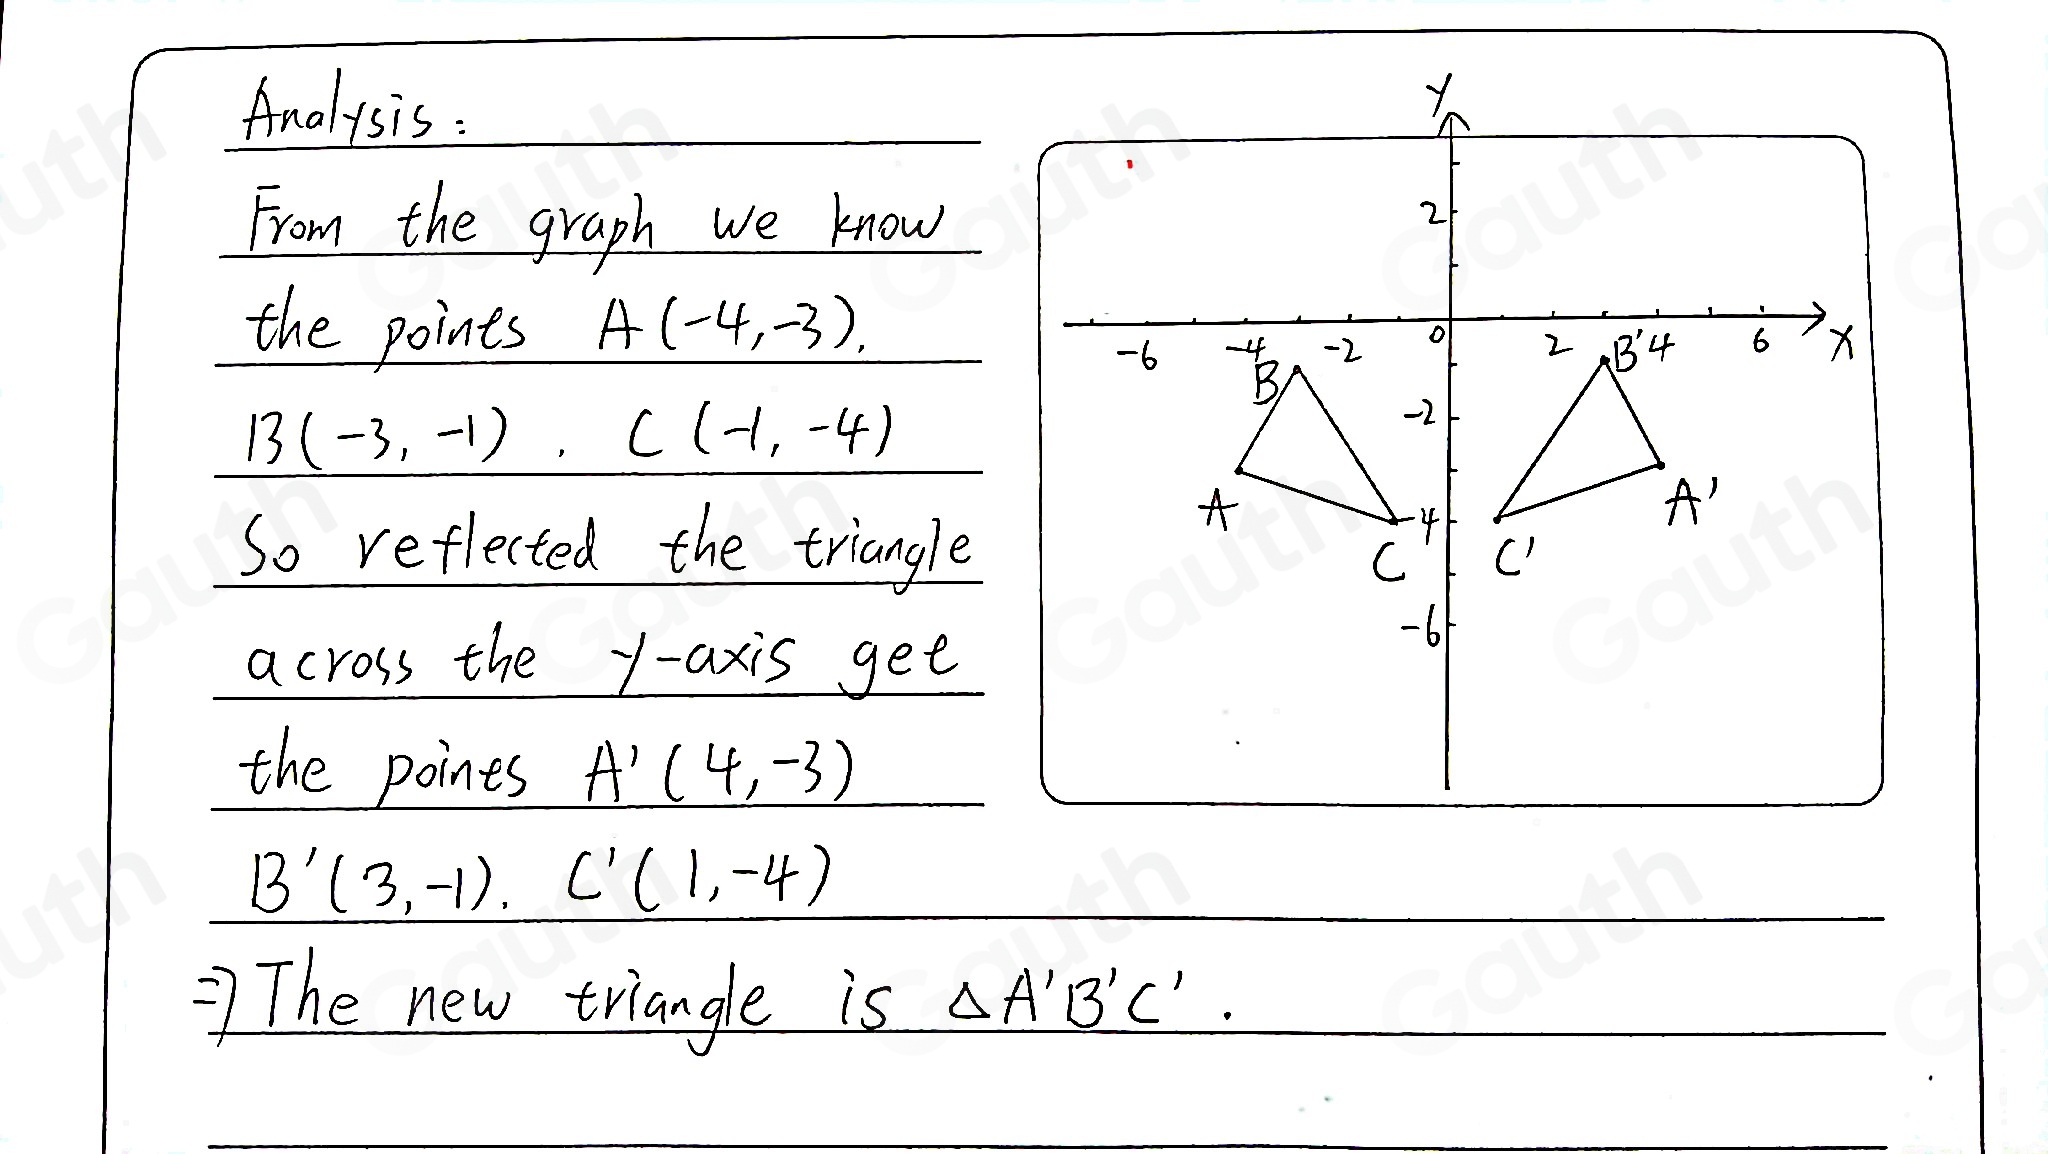 Analysis:
From the graph we know
the points A(-4,-3).
B(-3,-1). C(-1,-4)
So reflected the triangle
across the y-axis get
the points A'(4,-3)
B'(3,-1). C'(1,-4)
=> The new triangle is △A'B'C'.
y
2
-6 -4 -2 0 2 4 6 x
B B'
-2
A A'
-4
C C'
-6
Gauth